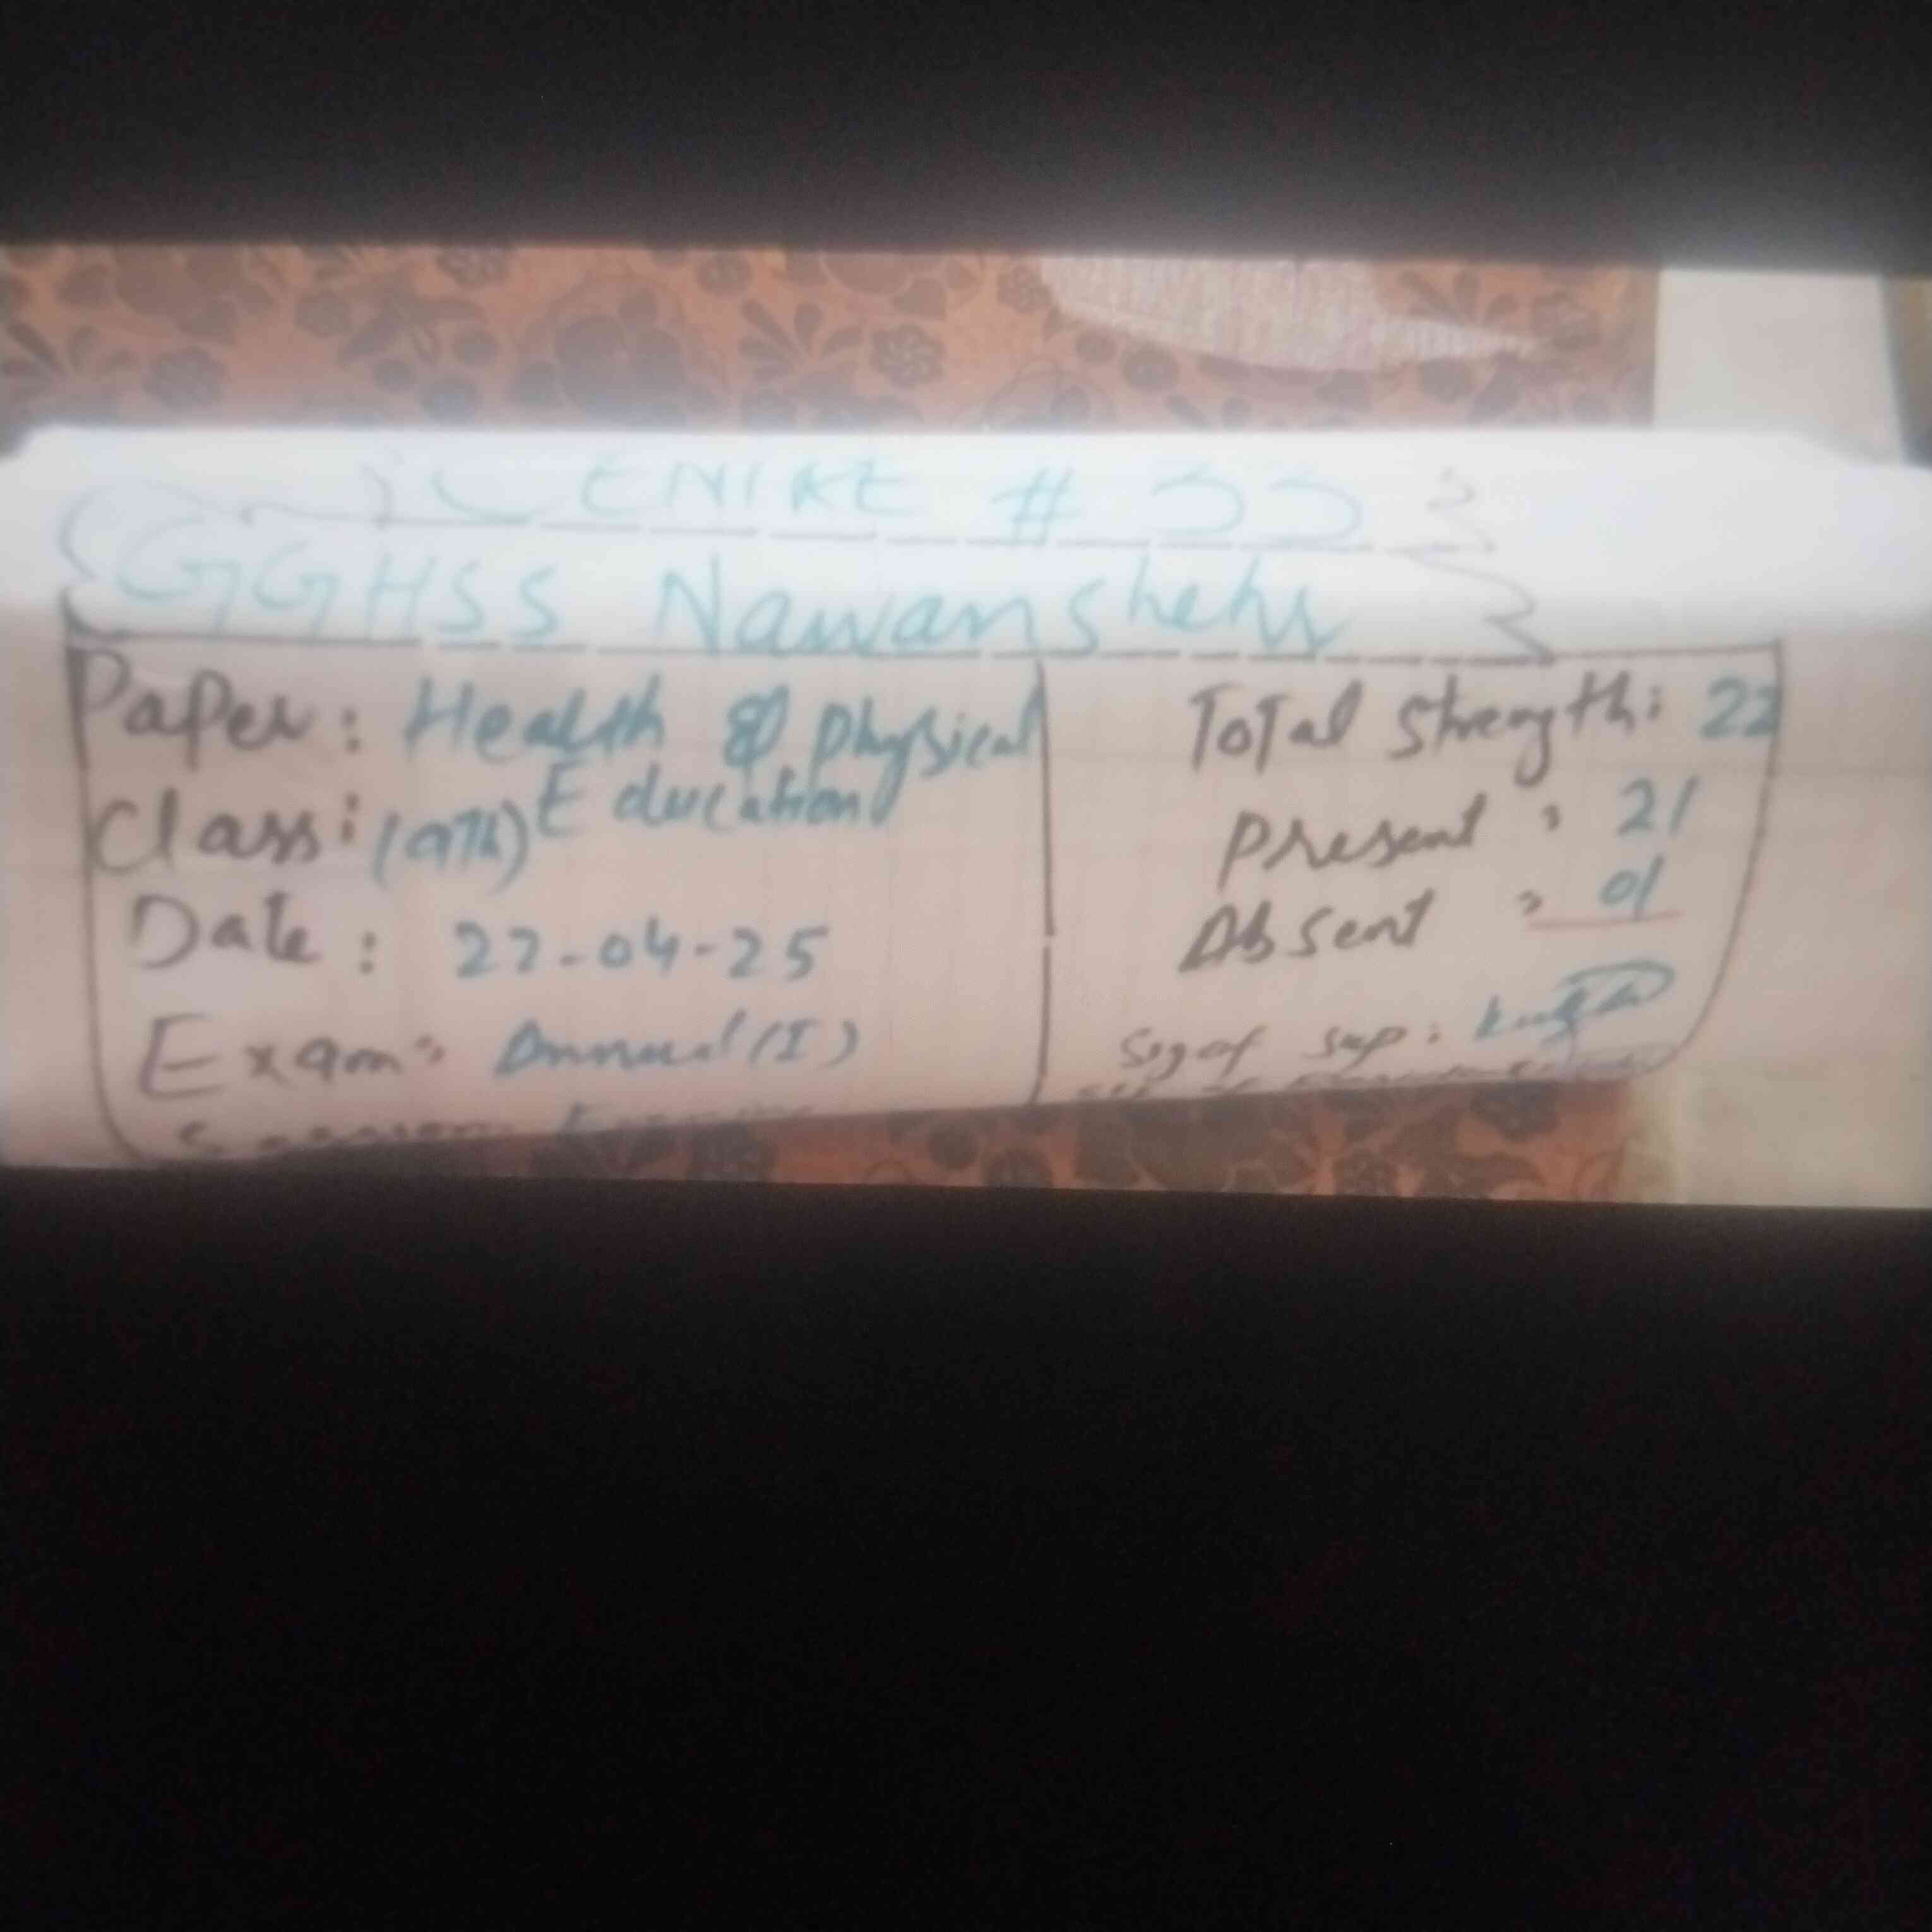 CENTRE # 33
GGHSS Nawanshehr
Paper: Health & Physical
Education
Class: (9Th)
Date: 22-04-25
Exam: Annual (I)
Total Strength: 22
Present: 21
Absent: 01
Sig of Sup: